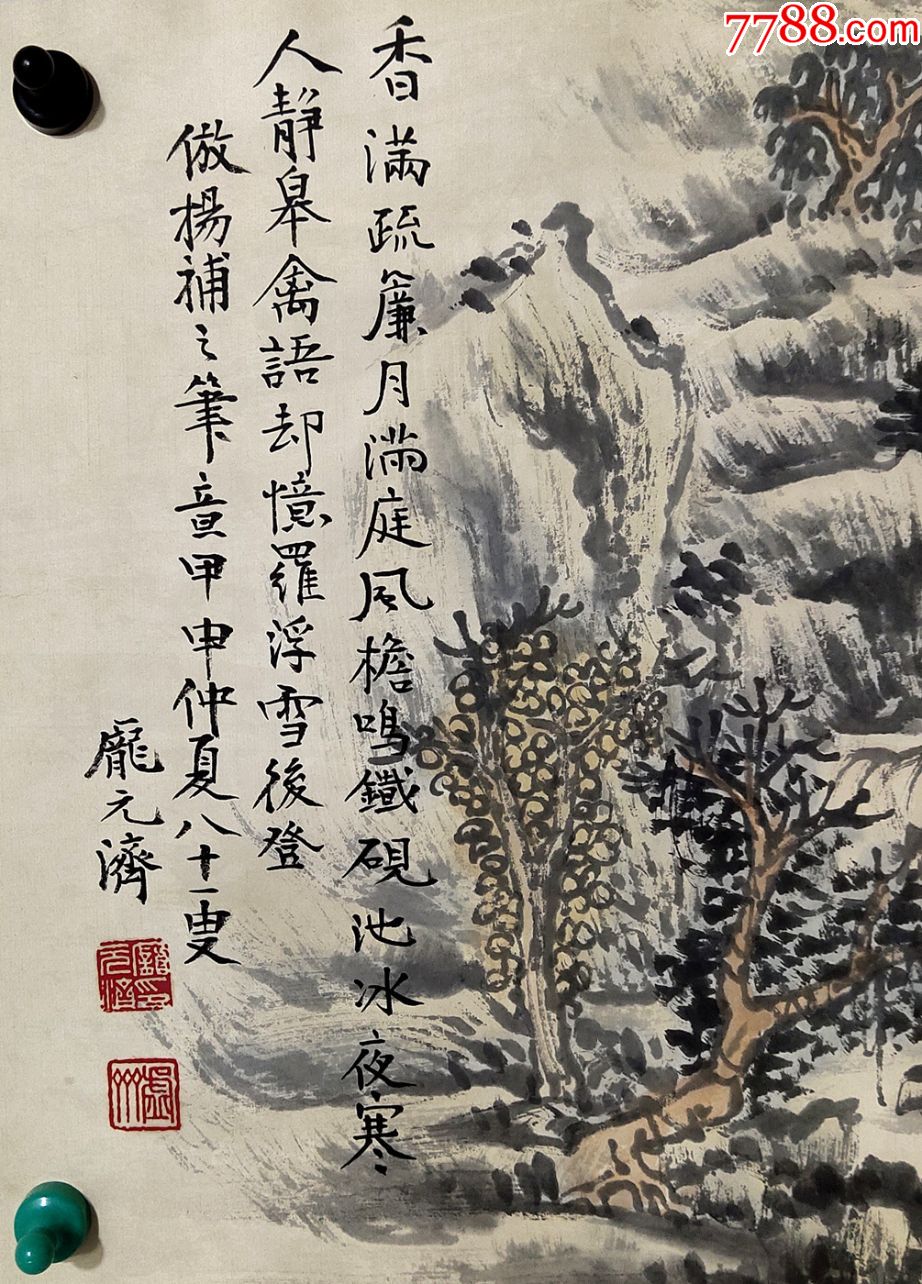 7788.com
香滿疏簾月滿庭風檐鳴鐵硯池冰夜寒
人靜皋禽語却憶羅浮雪後登
倣楊補之筆意甲申仲夏八十一叟
龐元濟
虛州